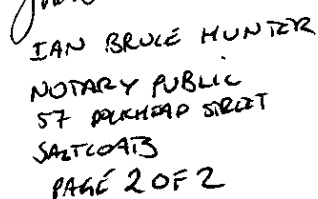 IAN BRUCE HUNTER
NOTARY PUBLIC
57 DOCKHEAD STREET
SALTCOATS
PAGE 2 OF 2